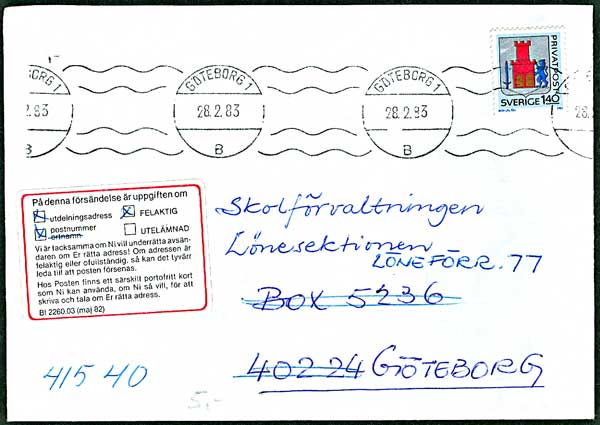 GÖTEBORG 1
28.2.83
B
GÖTEBORG 1
28.2.83
B
PRIVATPOST
SVERIGE 140
På denna försändelse är uppgiften om
utdelningsadress
FELAKTIG
postnummer
ortnamn
UTELÄMNAD
Vi är tacksamma om Ni vill underrätta avsän-
daren om Er rätta adress! Om adressen är
felaktig eller ofullständig, så kan det tyvärr
leda till att posten försenas.
Hos Posten finns ett särskilt portofritt kort
som Ni kan använda, om Ni så vill, för att
skriva och tala om Er rätta adress.
Bl 2260.03 (maj 82)
Skolförvaltningen
Lönesektionen
LÖNEFÖRR. 77
BOX 5236
40224 GÖTEBORG
415 40
5,-